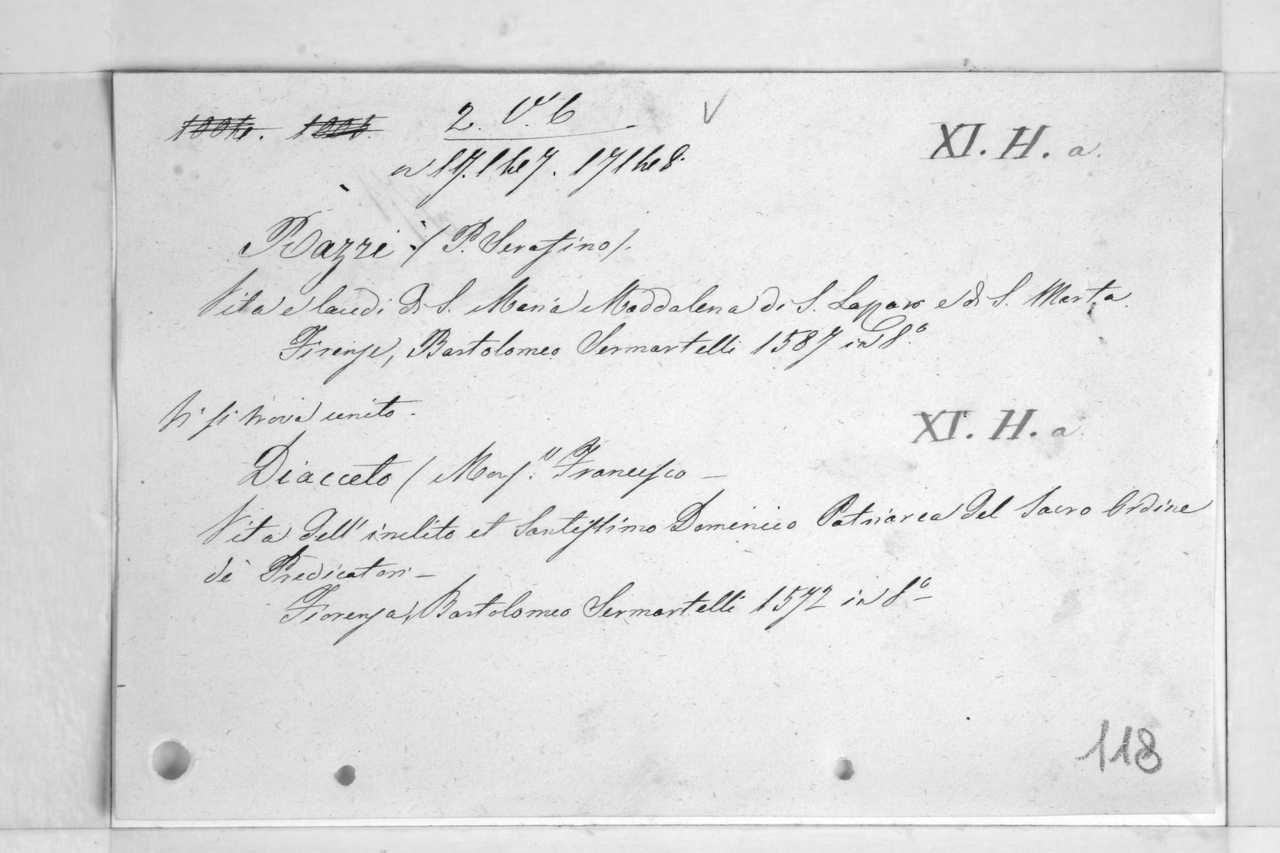 2. V. 6 V
XI. H. a.
Razzi (P. Serafino).
Vita e laudi di S. Maria Maddalena di S. Lazaro e di S. Marta.
Firenze, Bartolomeo Sermartelli 1587 in 8.°
Vi si trova unito.
XI. H. a
Diacceto (Mons.r Francesco —
Vita dell' inclito et Santissimo Domenico Patriarca del Sacro Ordine
de' Predicatori —
Fiorenza, Bartolomeo Sermartelli 1572 in 8° —
118